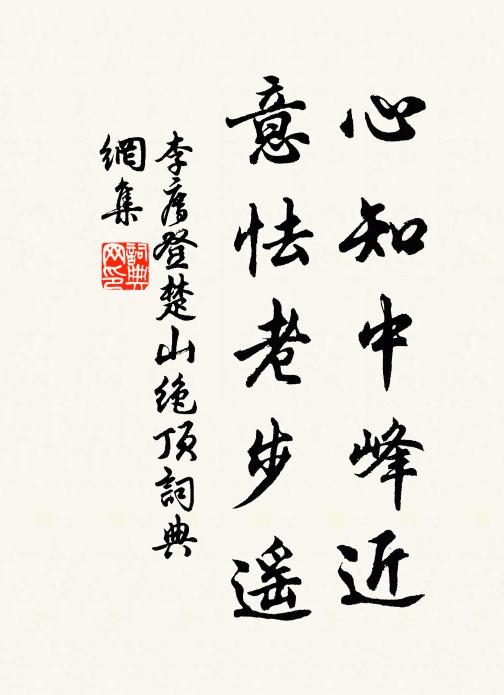 心知中峰近
意怯老步遥
李廌登楚山绝顶詞典
網集
詞典
网印